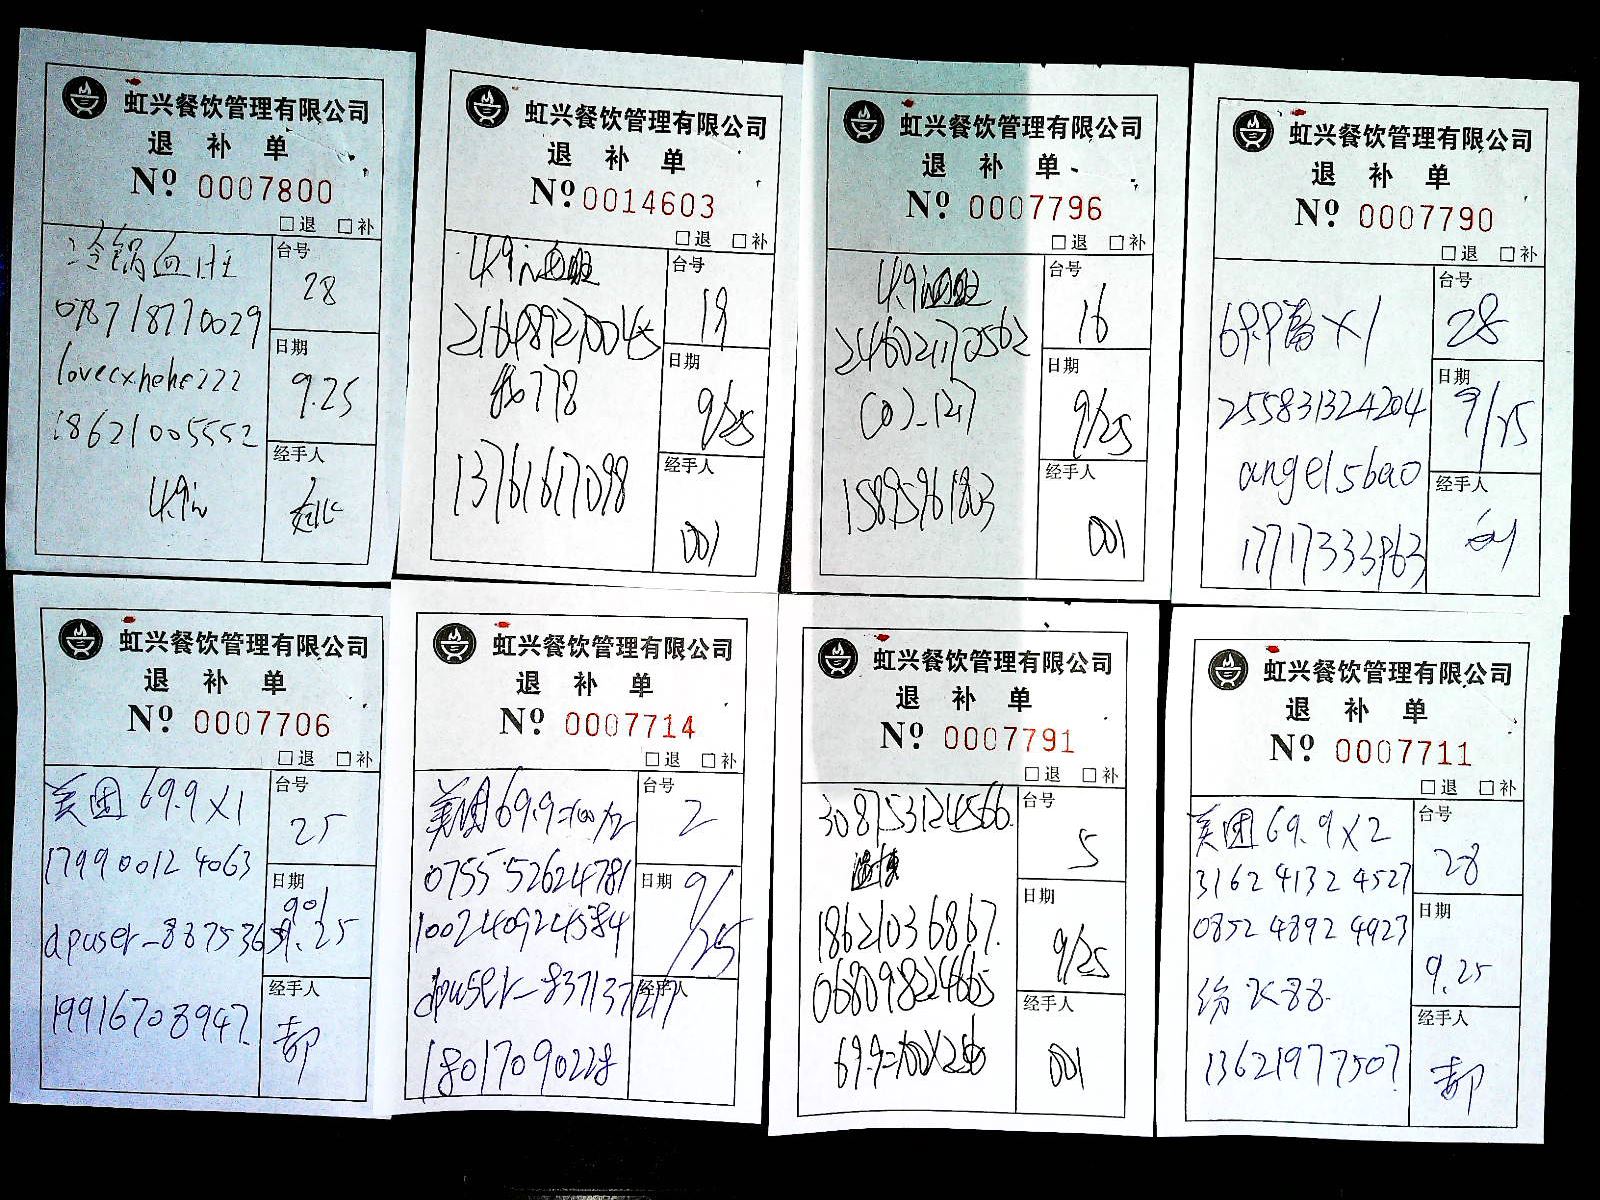 虹兴餐饮管理有限公司
退 补 单
Nº 0007800
□退 □补
冷锅血旺
087187710029
lovecxhehe222
18621005552
4.9
台号
28
日期
9.25
经手人
虹兴餐饮管理有限公司
退 补 单
Nº 0014603
□退 □补
4.9
13761617098
台号
19
日期
9/25
经手人
001
虹兴餐饮管理有限公司
退 补 单
Nº 0007796
□退 □补
4.9
244602170562
15895961803
台号
16
日期
9/25
经手人
001
虹兴餐饮管理有限公司
退 补 单
Nº 0007790
□退 □补
255831324204
angel5bao
17717333963
台号
28
日期
9/25
经手人
虹兴餐饮管理有限公司
退 补 单
Nº 0007706
□退 □补
美团 69.9 X1
179900124063
dpuser-8375365901
19916703947.
台号
25
日期
9.25
经手人
郝
虹兴餐饮管理有限公司
退 补 单
Nº 0007714
□退 □补
美团 69.9=100X2
0755 52624781
100240924584
dpuser-8371371217
18017090228
台号
2
日期
9/25
经手人
虹兴餐饮管理有限公司
退 补 单
Nº 0007791
□退 □补
308753124566.
18621036867.
068098224665
台号
5
日期
9/25
经手人
001
虹兴餐饮管理有限公司
退 补 单
Nº 0007711
□退 □补
美团 69.9 X2
3162 4132 4527
0852 4892 4923
13621977507
台号
28
日期
9.25
经手人
郝